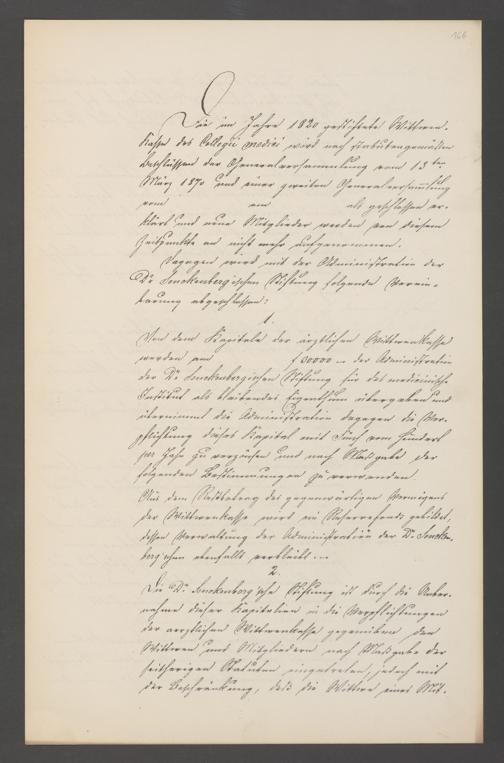 166
Die im Jahre 1820 gestiftete Wittwen-
Kasse des Collegii medici wird nach statutengemäßen
Beschlüssen der Generalversammlung vom 13ten
März 1870 und einer zweiten Generalversammlung
vom am als geschlossen er-
klärt und neue Mitglieder werden von diesem
Zeitpunkte an nicht mehr aufgenommen.
Dagegen wird mit der Administration der
Dr Senckenbergischen Stiftung folgende Verein-
barung abgeschlossen:
1.
Von dem Kapitale der ärztlichen Wittwenkasse
werden am f 50000 – der Administration
der Dr Senckenbergischen Stiftung für das medicinische
Institut als bleibendes Eigenthum übergeben und
übernimmt die Administration dagegen die Ver-
pflichtung dieses Kapital mit Fünf vom Hundert
per Jahr zu verzinsen und nach Maßgabe der
folgenden Bestimmungen zu verwenden.
Aus dem Restbetrag des gegenwärtigen Vermögens
der Wittwenkasse wird ein Reservefonds gebildet,
dessen Verwaltung der Administration der Dr Sencken-
berg'schen ebenfalls verbleibt.
2.
Die Dr Senckenberg'sche Stiftung ist durch die Ueber-
nahme dieser Kapitalien in die Verpflichtungen
der aerztlichen Wittwenkasse gegenüber den
Wittwen und Mitgliedern nach Maßgabe der
seitherigen Statuten eingetreten, jedoch mit
der Beschränkung, daß die Wittwe eines Mit-